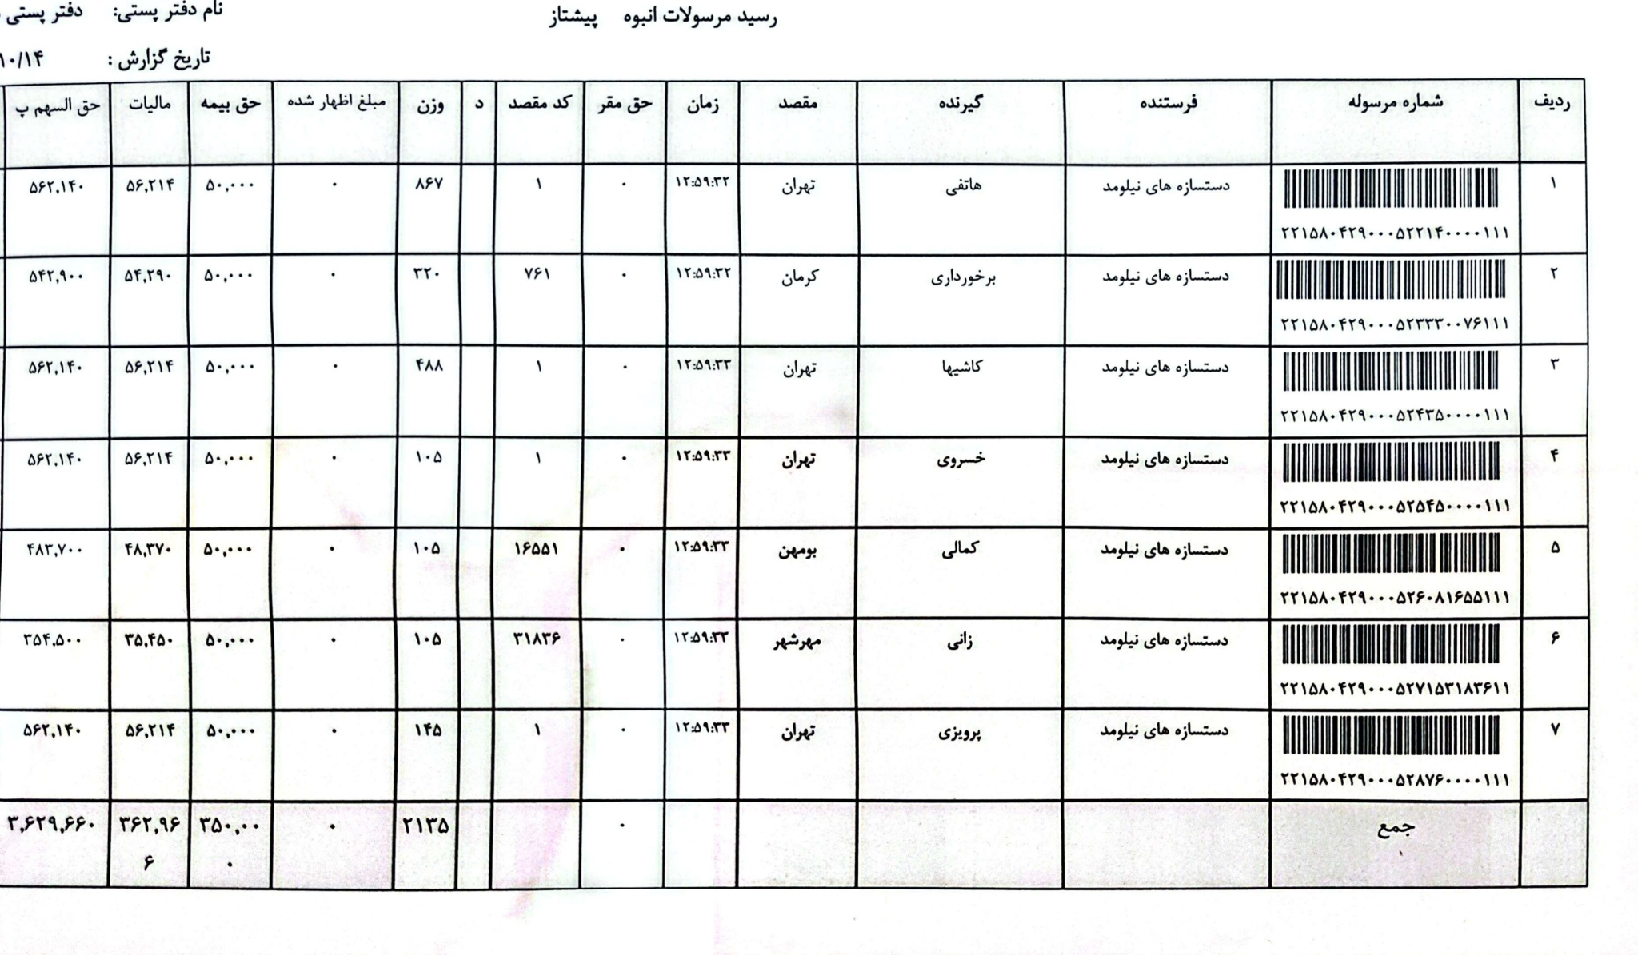 رسید مرسولات انبوه پیشتاز
نام دفتر پستی: دفتر پستی
تاریخ گزارش : ۱۰/۱۴
ردیف شماره مرسوله فرستنده گیرنده مقصد حق مقر زمان کد مقصد د وزن مبلغ اظهار شده حق بیمه مالیات حق السهم پ
۱ دستسازه های نیلومد هاتفی تهران ۱۲:۵۹:۳۲ ۰ ۱ ۸۶۷ ۰ ۵۰,۰۰۰ ۵۶,۲۱۴ ۵۶۲,۱۴۰
۲۲۱۵۸۰۴۲۹۰۰۰۵۲۲۱۴۰۰۰۰۱۱۱
۲ دستسازه های نیلومد برخورداری کرمان ۱۲:۵۹:۳۲ ۰ ۷۶۱ ۳۲۰ ۰ ۵۰,۰۰۰ ۵۴,۲۹۰ ۵۴۲,۹۰۰
۲۲۱۵۸۰۴۲۹۰۰۰۵۲۳۳۳۰۰۷۶۱۱۱
۳ دستسازه های نیلومد کاشیها تهران ۱۲:۵۹:۳۳ ۰ ۱ ۴۸۸ ۰ ۵۰,۰۰۰ ۵۶,۲۱۴ ۵۶۲,۱۴۰
۲۲۱۵۸۰۴۲۹۰۰۰۵۲۴۳۵۰۰۰۰۱۱۱
۴ دستسازه های نیلومد خسروی تهران ۱۲:۵۹:۳۳ ۰ ۱ ۱۰۵ ۰ ۵۰,۰۰۰ ۵۶,۲۱۴ ۵۶۲,۱۴۰
۲۲۱۵۸۰۴۲۹۰۰۰۵۲۵۴۵۰۰۰۰۱۱۱
۵ دستسازه های نیلومد کمالی بومهن ۱۲:۵۹:۳۳ ۰ ۱۶۵۵۱ ۱۰۵ ۰ ۵۰,۰۰۰ ۴۸,۳۷۰ ۴۸۳,۷۰۰
۲۲۱۵۸۰۴۲۹۰۰۰۵۲۶۰۸۱۶۵۵۱۱۱
۶ دستسازه های نیلومد زانی مهرشهر ۱۲:۵۹:۳۳ ۰ ۳۱۸۳۶ ۱۰۵ ۰ ۵۰,۰۰۰ ۳۵,۴۵۰ ۳۵۴,۵۰۰
۲۲۱۵۸۰۴۲۹۰۰۰۵۲۷۱۵۳۱۸۳۶۱۱
۷ دستسازه های نیلومد پرویزی تهران ۱۲:۵۹:۳۳ ۰ ۱ ۱۴۵ ۰ ۵۰,۰۰۰ ۵۶,۲۱۴ ۵۶۲,۱۴۰
۲۲۱۵۸۰۴۲۹۰۰۰۵۲۸۷۶۰۰۰۰۱۱۱
جمع ۰ ۲۱۳۵ ۰ ۳۵۰,۰۰ ۳۶۲,۹۶ ۳,۶۲۹,۶۶۰
۰ ۶